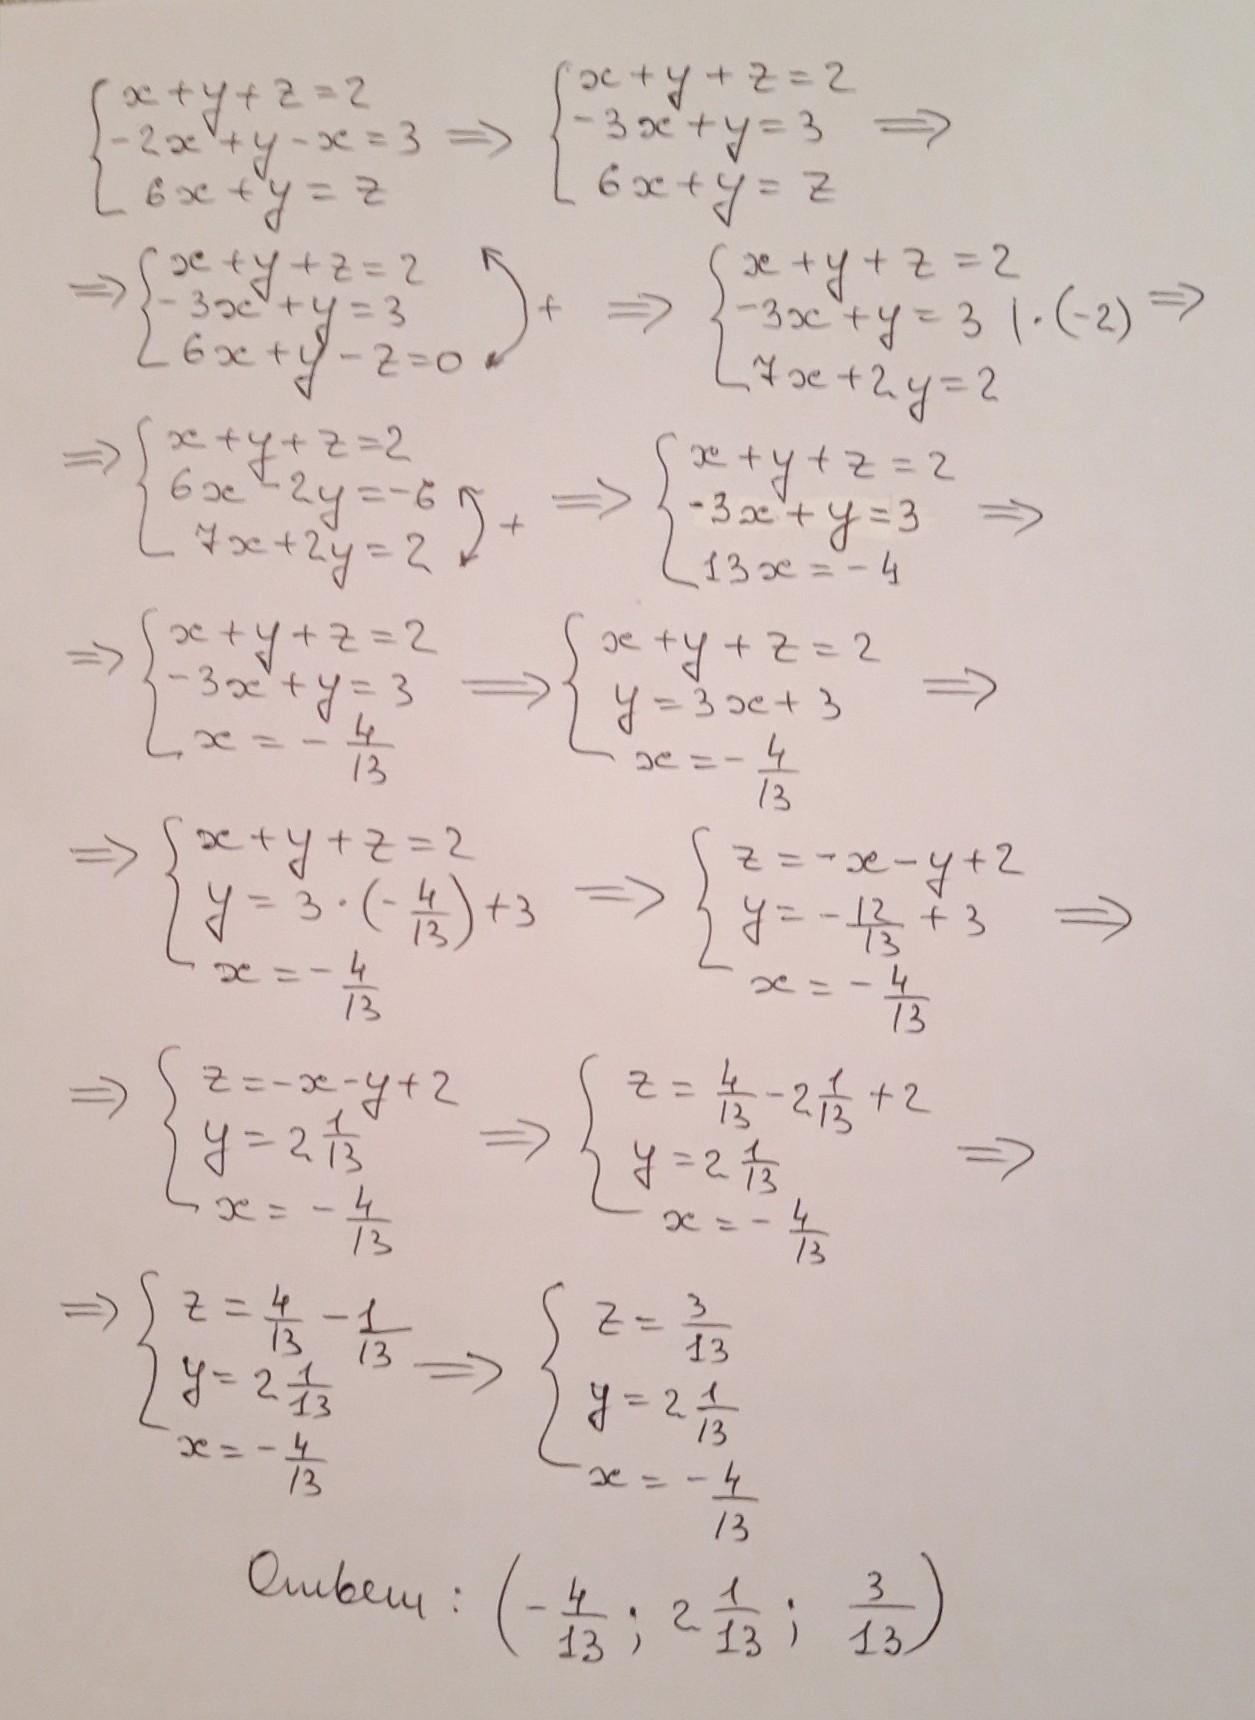 x+y+z=2
-2x+y-x=3 ⟹
6x+y=z
x+y+z=2
-3x+y=3 ⟹
6x+y=z
⟹ x+y+z=2
-3x+y=3 + ⟹
6x+y-z=0
x+y+z=2
-3x+y=3 |·(-2) ⟹
7x+2y=2
⟹ x+y+z=2
6x-2y=-6
7x+2y=2 + ⟹
x+y+z=2
-3x+y=3 ⟹
13x=-4
⟹ x+y+z=2
-3x+y=3 ⟹
x=-4/13
x+y+z=2
y=3x+3 ⟹
x=-4/13
⟹ x+y+z=2
y=3·(-4/13)+3 ⟹
x=-4/13
z=-x-y+2
y=-12/13+3 ⟹
x=-4/13
⟹ z=-x-y+2
y=2 1/13 ⟹
x=-4/13
z=4/13-2 1/13+2
y=2 1/13 ⟹
x=-4/13
⟹ z=4/13-1/13
y=2 1/13 ⟹
x=-4/13
z=3/13
y=2 1/13
x=-4/13
Ответ: (-4/13; 2 1/13; 3/13)